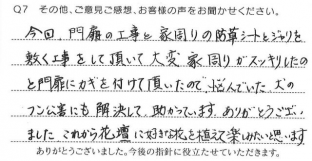 Q7 その他、ご意見ご感想、お客様の声をお聞かせください。
今回、門扉の工事と家周りの防草シートとジャリを
敷く工事をして頂いて大変家周りがスッキリしたの
と門扉にカギを付けて頂いたので、悩んでいた犬の
フン公害にも解決して、助かっています。ありがとうござい
ました これから花壇に好きな花を植えて楽しみたいと思います。
ありがとうございました。今後の指針に役立たせていただきます。